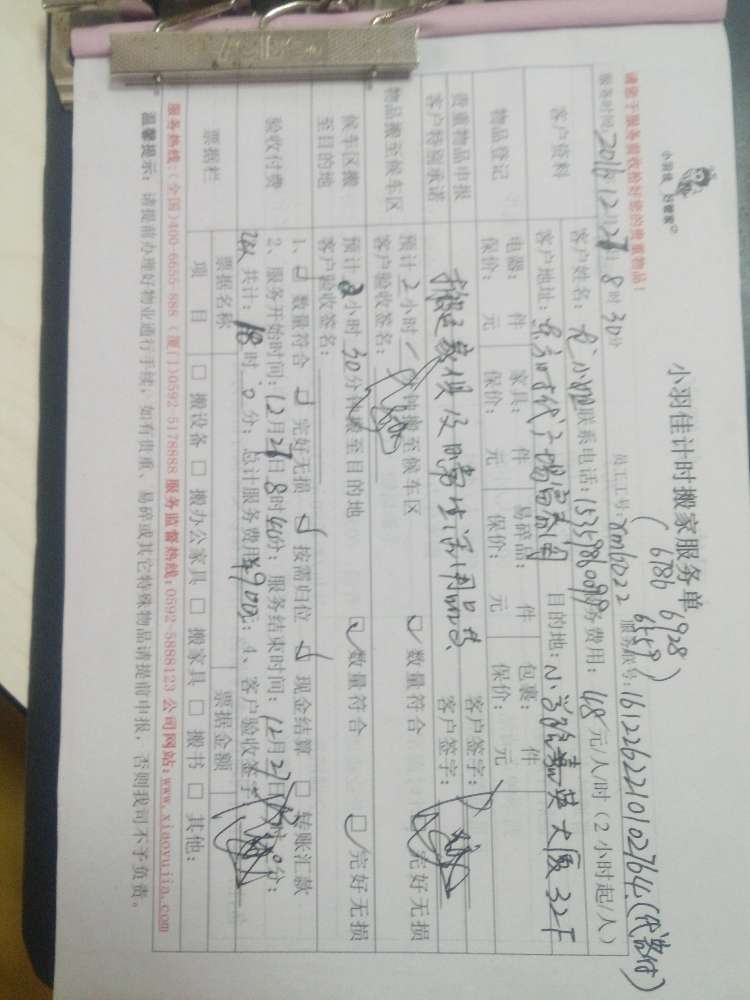 小羽佳 好管家
小羽佳计时搬家服务单
(6786 6928)
请您于服务前收拾好您的贵重物品!
员工工号: xm10022 服务账号: 161226221010276 4(代客付)
服务时间: 2016年12月27日8时30分
服务费用: 48元/人/时(2小时起/人)
客户资料
客户姓名: 尤小姐 联系电话: 15359860099
客户地址: 东方时代广场富春阁 目的地: 小学路嘉英大厦32F
物品登记
电器: 件 家具: 件 易碎品: 件 包裹: 件
保价: 元 保价: 元 保价: 元 保价: 元
贵重物品申报 客户签字:
客户特别承诺 搬运家俱及日常生活用品 客户签字:
物品搬至候车区
预计2小时 分钟搬至候车区 数量符合 完好无损
客户验收签名:
候车区搬至目的地
预计2小时30分钟搬至目的地 数量符合 完好无损
客户验收签名:
验收付费
1、数量符合 完好无损 按需归位 现金结算 转账汇款
2、服务开始时间: 12月27日8时40分; 服务结束时间: 12月27日
共计: 18时0分; 总计服务费用: 900元; 4、客户验收签字:
票据栏
票据名称 票据金额
项目 搬设备 搬办公家具 搬家具 搬书 其他:
服务热线:(全国)400-6655-888 (厦门)0592-5178888 服务监督热线:0592-5888123 公司网站:www.xiaoyujia.com
温馨提示: 请提前办理好物业通行手续, 如有贵重、易碎或其它特殊物品请提前申报, 否则我司不予负责。